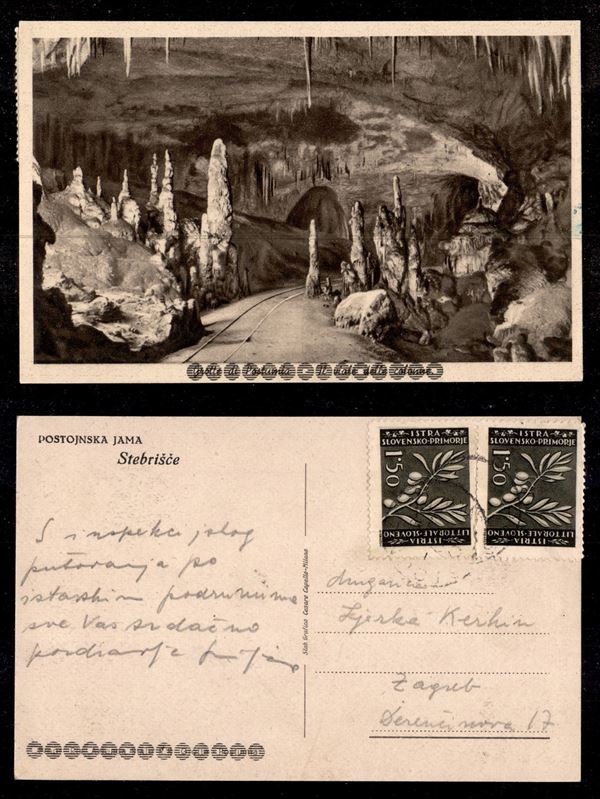 Grotte di Postumia - Il viale delle colonne.
POSTOJNSKA JAMA
Stebrišče
ISTRA
SLOVENSKO-PRIMORJE
1'50
ISTRIA
LITTORALE-SLOVENO
ISTRA
SLOVENSKO-PRIMORJE
1'50
ISTRIA
LITTORALE-SLOVENO
S inspekcijskog
putovanja po
istarskim podrumima
sve Vas srdačno
pozdravlja
Stab Grafico Cesare Capello-Milano
drugarici
Kerhin
Zagreb
Derenčinova 17